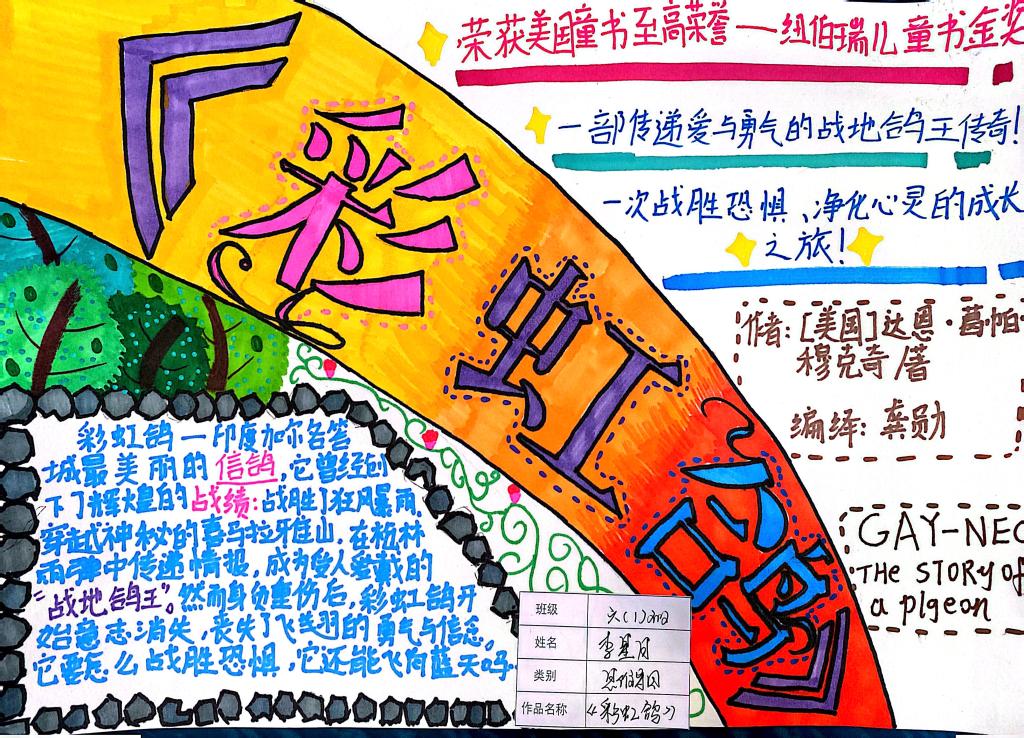 荣获美国童书至高荣誉一纽伯瑞儿童书金奖
一部传递爱与勇气的战地鸽王传奇!
一次战胜恐惧、净化心灵的成长
之旅!
《彩虹鸽》
作者:[美国]达恩·葛帕
穆克奇/著
编绎:龚勋
GAY-NEC
THE STORY of
a pIgeon
彩虹鸽一印度加尔各答
城最美丽的信鸽,它曾经创
下了辉煌的战绩:战胜了狂风暴雨,
穿越神秘的喜马拉牙住山,在枪林
雨弹中传递情报,成为受人爱戴的
“战地鸽王”。然而身负重伤后,彩虹鸽开
始意志消失,丧失了飞翔的勇气与信念。
它要怎么战胜恐惧,它还能飞向蓝天吗
班级 六(1)
姓名 李星月
类别
作品名称 《彩虹鸽》